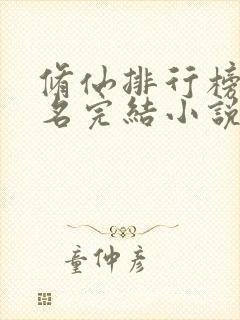 脩仙排行榜
名完結小說
童仲彥